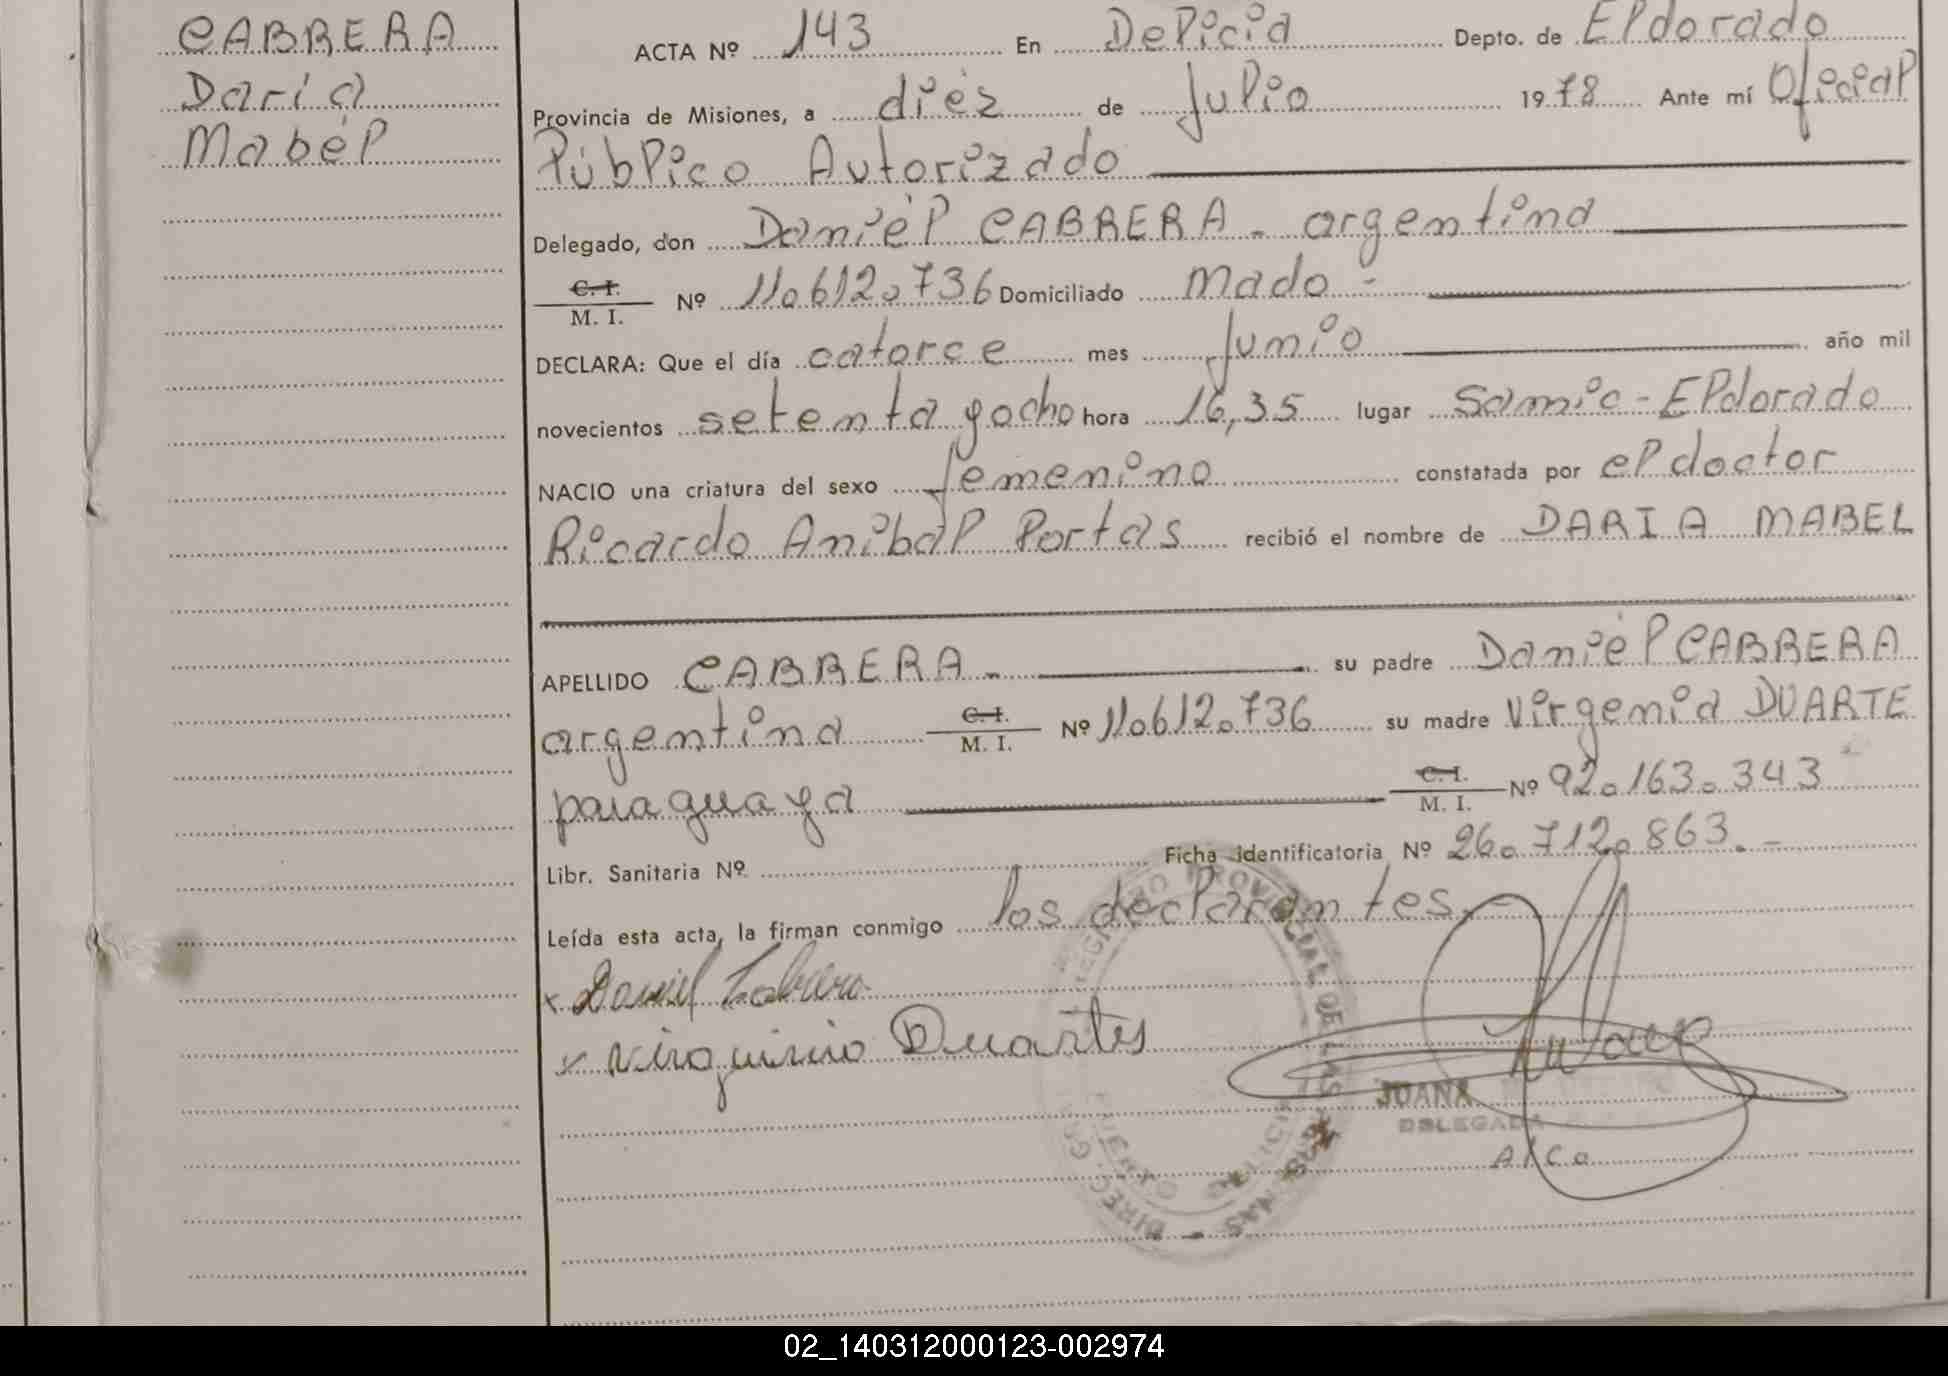 CABRERA
Daria
Mabel
ACTA Nº 143 En Delicia Depto. de Eldorado
Provincia de Misiones, a diez de Julio 1978 Ante mí Oficial
Público Autorizado
Delegado, don Daniel CABRERA - argentina
C. I. / M. I. Nº 11.612.736 Domiciliado Mado -
DECLARA: Que el día catorce mes Junio año mil
novecientos setenta y ocho hora 16,35 lugar Samic - Eldorado
NACIO una criatura del sexo femenino constatada por el doctor
Ricardo Anibal Portas recibió el nombre de DARIA MABEL
APELLIDO CABRERA - su padre Daniel CABRERA
argentina C. I. / M. I. Nº 11.612.736 su madre Virgenia DUARTE
paraguaya C. I. / M. I. Nº 92.163.343
Libr. Sanitaria Nº Ficha identificatoria Nº 26.712.863. -
Leída esta acta, la firman conmigo los declarantes. -
x Daniel Cabrera
x Duartes
JUANA
DELEGADA
A/C.
DIREC. GRAL. REGISTRO PROVINCIAL DE LAS PERSONAS
02_140312000123-002974